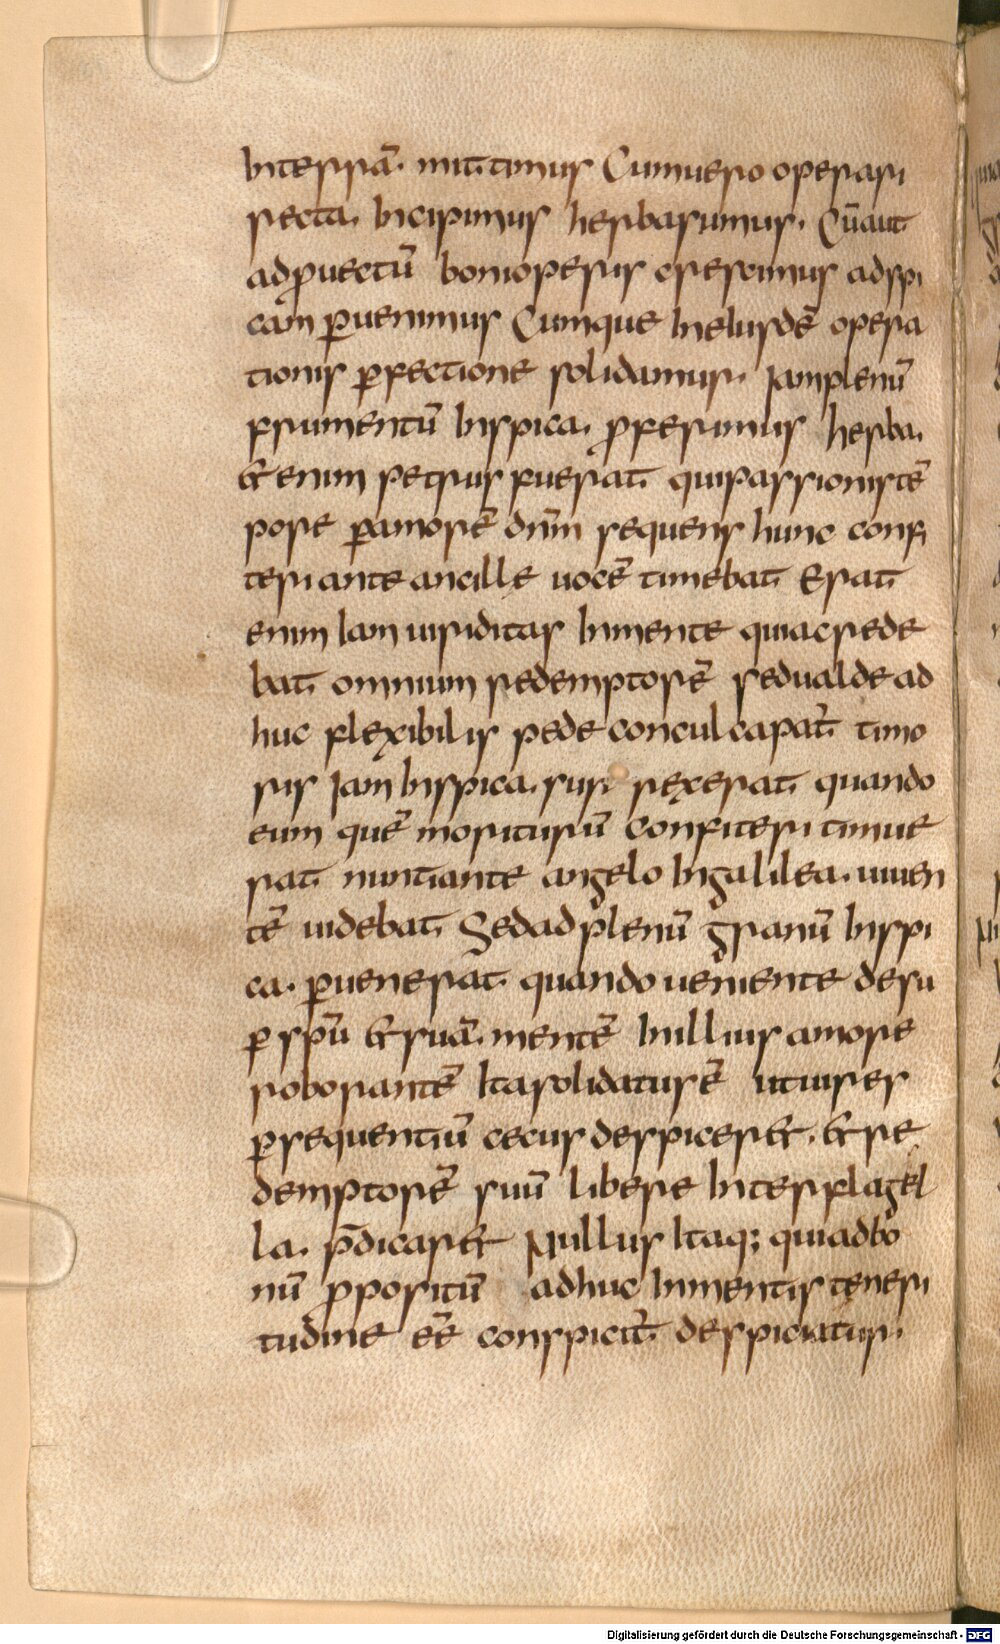 interrā. mittimus Cumuero operari
recta. incipimus herbasumus. Cūaut
adꝓuectū bonioperis crescimus adspi
cam ꝑuenimus Cumque ineiusdē opera
tionis ꝑfectione solidamur. Jamplenū
frumentū inspica. ꝓferimus herba.
&enim petrus fuerat quipassionistē
pore ꝑamorē dn̄m sequens hunc confi
teri ante ancillę uocē timebat Erat
enim iam uiriditas inmente quiacrede
bat omnium redemptorē sedualdead
huc flexibilis pede conculcapat̄ timo
ris Jam inspica. sur rexerat quando
eum quē moriturū confiteri timue
rat nuntiante angelo ingalilea. uiuen
tē uidebat Sedadplenū granū inspi
ca. ꝑuenerat quando ueniente desu
ꝑ sp̄u &suā. mentē inillius amore
roborantē Itasolidaturē utuires
ꝑsequentiū cecus despicer&. &re
demptorē suū libere interflagel
la. p̄dicar& Nullus itaq; quiadbo
nū ꝓpositū adhuc inmentis teneri
tudine eē conspicit̄ despiciatur.
Digitalisierung gefördert durch die Deutsche Forschungsgemeinschaft - DFG